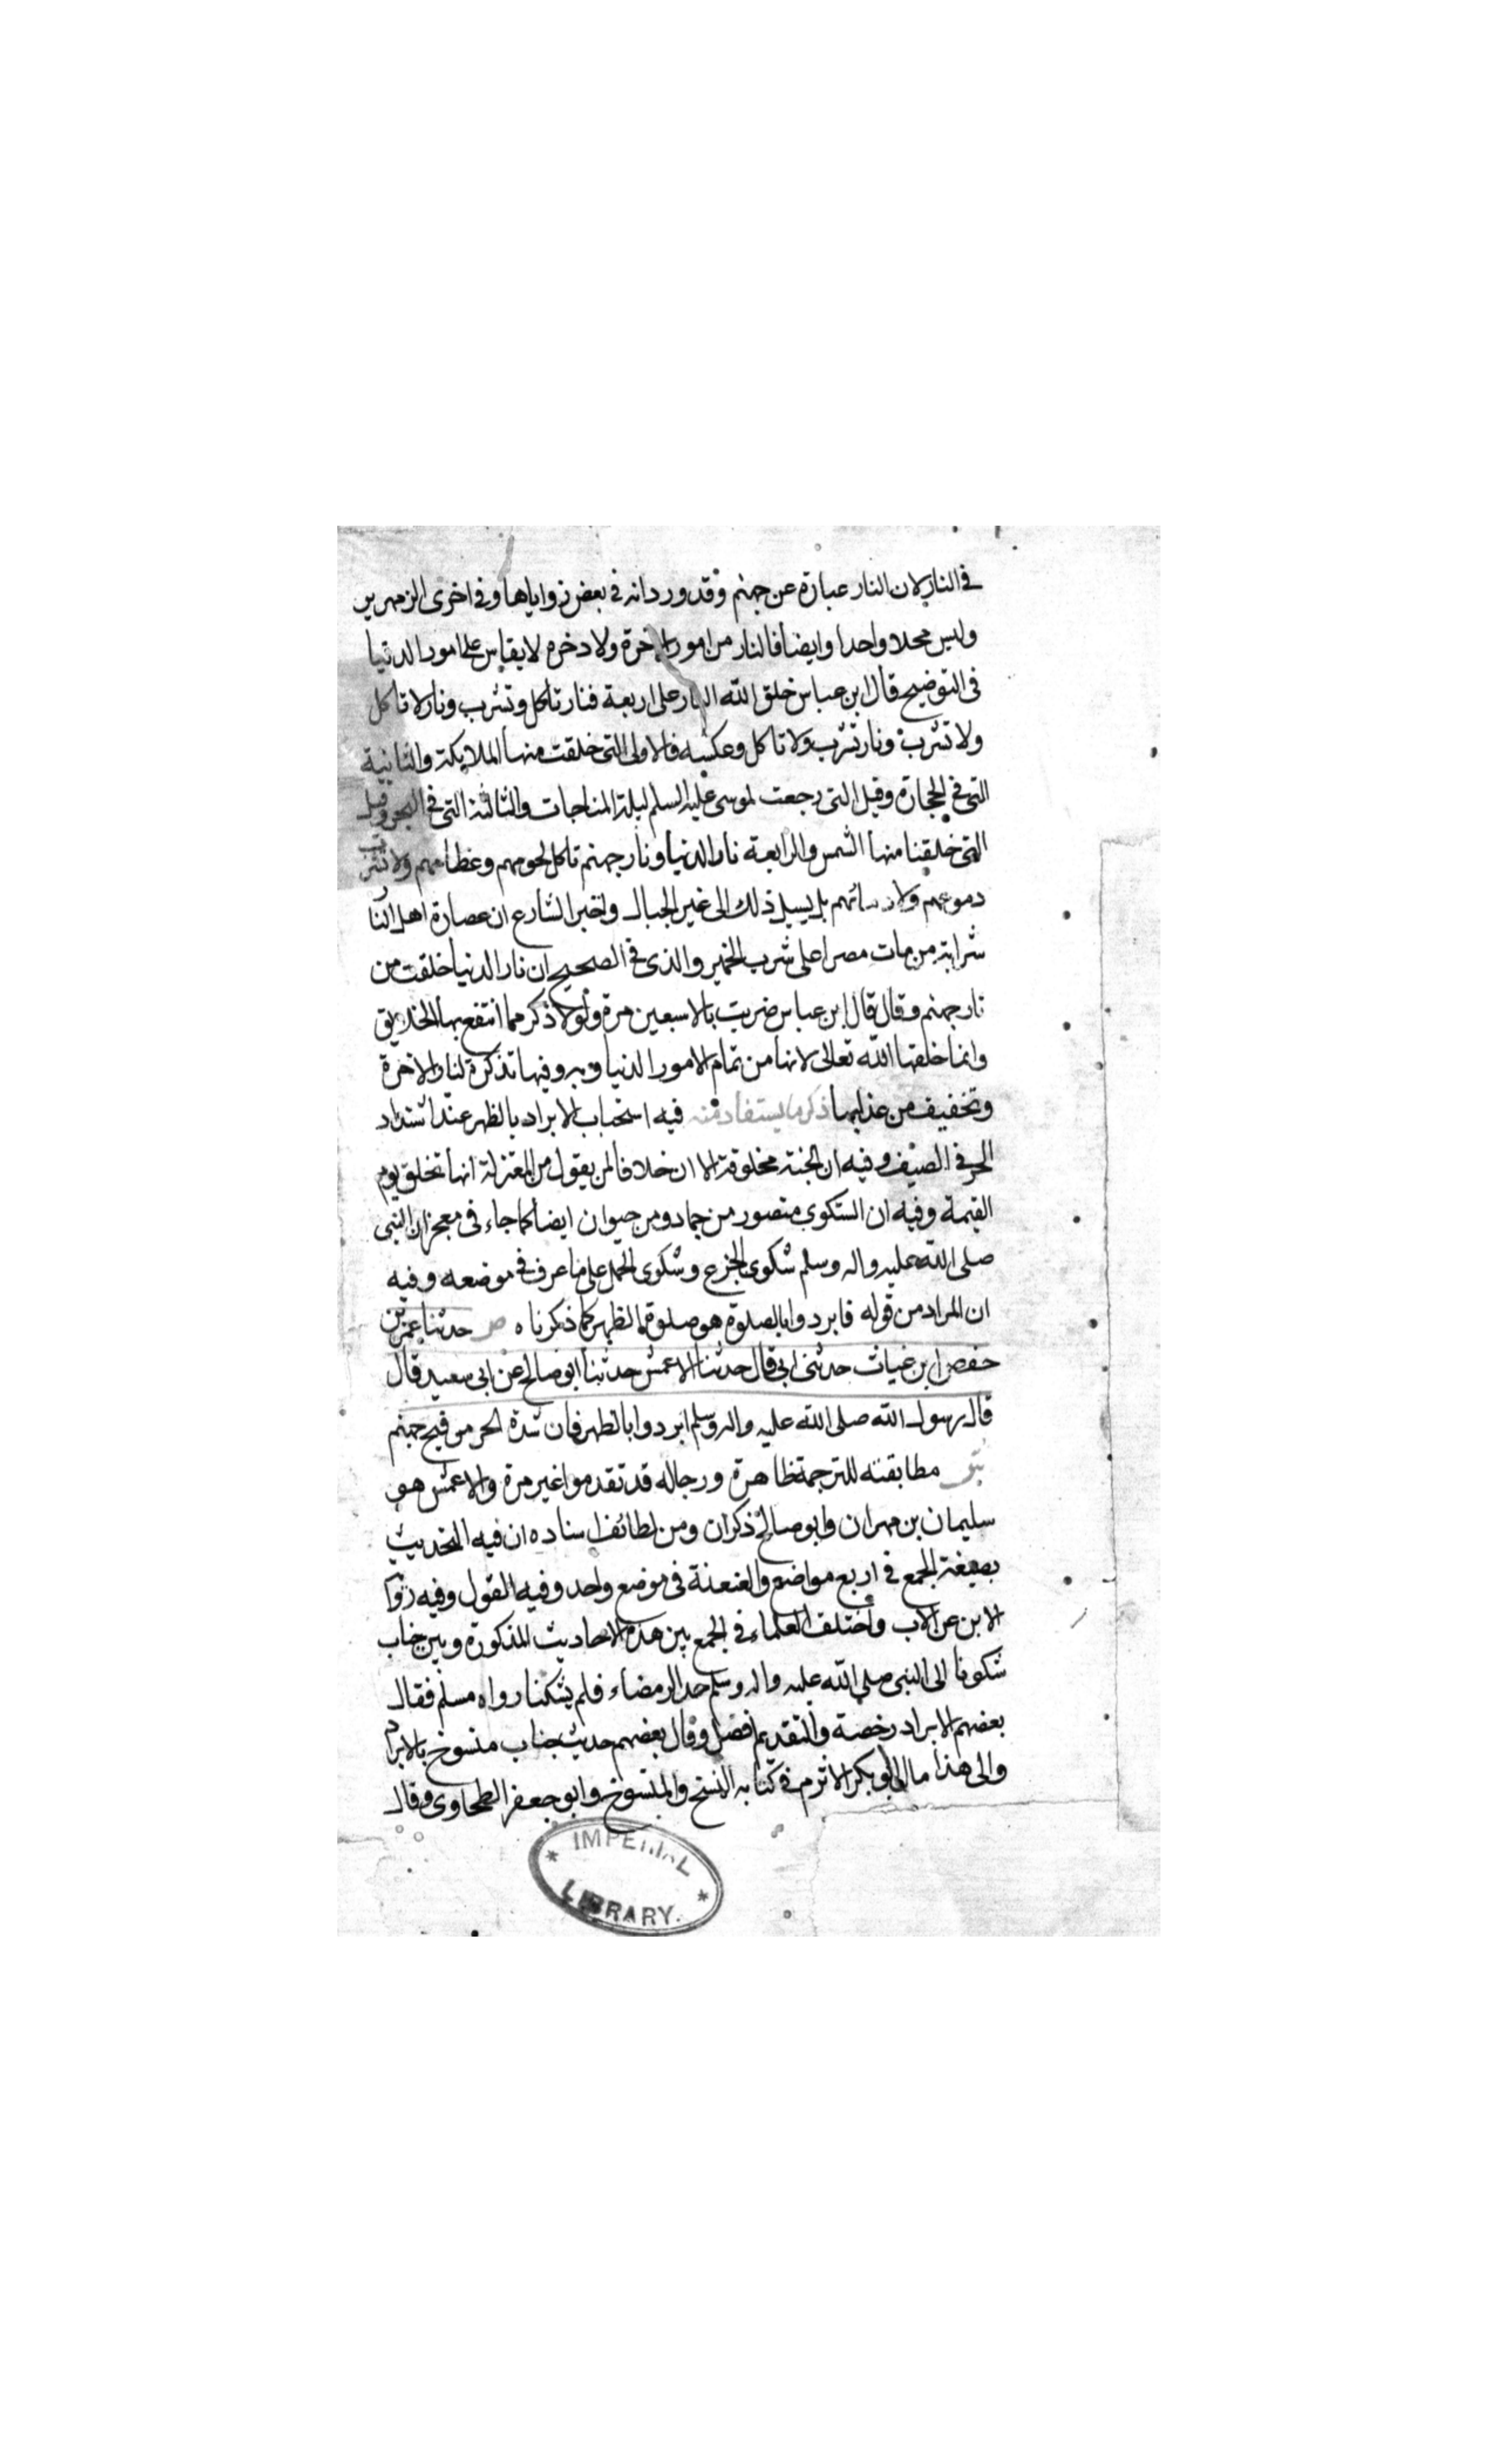 في النار لان النار عبارة عن جهنم وقد ورد انه في بعض زواياها وفي اخرى الزمهرير
وليس محلا واحدا وايضا فالنار من امور الاخرة ولا دخره لا يقاس على امور الدنيا
في التوضيح قال ابن عباس خلق الله النار على اربعة فنار تاكل وتشرب ونار لا تاكل
ولا تشرب ونار تشرب ولا تاكل وعكسه فالاولى التي خلقت منها الملايكة والثانية
التي في الحجارة وقيل التي رجعت لموسى عليه السلم ليلة المناجات والثالثة التي في البحر وقيل
التي خلقنا منها الشمس والرابعة نار الدنيا ونار جهنم تاكل لحومهم وعظامهم ولا تشرب
دموعهم ولا دمائهم بل يسيل ذلك الى غير الجبال واخبر الشارع ان عصارة اهل النا
شرابه من مات مصرا على شرب الخمير والذي في الصحيح ان نار الدنيا خلقت من
نار جهنم وقال قال ابن عباس ضربت بالا سبعين مرة ولولا ذكر مما انتفع بها الخلايق
وانما خلقها الله تعالى لانها من تمام الامور الدنيا وبرو فيها تذكرة لنار الاخرة
وتخفيف من عذابها ذكر ما يستفاد منه فيه استحباب الابراد بالظهر عند اشتداد
الحر في الصيف وفيه ان الجنة مخلوقة الا ان خلافا لمن يقول من المعتزلة انها تخلق يوم
القيمة وفيه ان الشكوى متصور من جماد ومن حيوان ايضا كما جاء في معجزات النبي
صلى الله عليه واله وسلم شكوى الجزع وشكوى الحمل على ما عرف في موضعه وفيه
ان المراد من قوله فابردوا بالصلوة هو صلوة الظهر كما ذكرناه ص حدثنا عمر بن
حفص ابن غياث حدثني ابي قال حدثنا الاعمش حدثنا ابو صالح عن ابي سعيد قال
قال رسول الله صلى الله عليه واله وسلم ابردوا بالظهر فان شدة الحر من فيح جهنم
ش مطابقته للترجمة ظاهرة ورجاله قد تقدموا غير مرة والاعمش هو
سليمان بن مهران وابو صالح ذكران ومن لطائف اسناده ان فيه التحديث
بصيغة الجمع في اربع مواضع والعنعنة في موضع واحد وفيه القول وفيه روا
الابن عن الاب واختلف العلماء في الجمع بين هذه الاحاديث المذكورة وبين خباب
شكونا الى النبي صلى الله عليه واله وسلم حد الرمضاء فلم يشكنا رواه مسلم فقال
بعضهم الابراد رخصة والتقديم افضل وقال بعضهم حديث خباب منسوخ بالابراد
والى هذا مال ابو بكر الاثرم في كتابه النسخ والمنسوخ وابو جعفر الطحاوى وقال
IMPERIAL
LIBRARY.